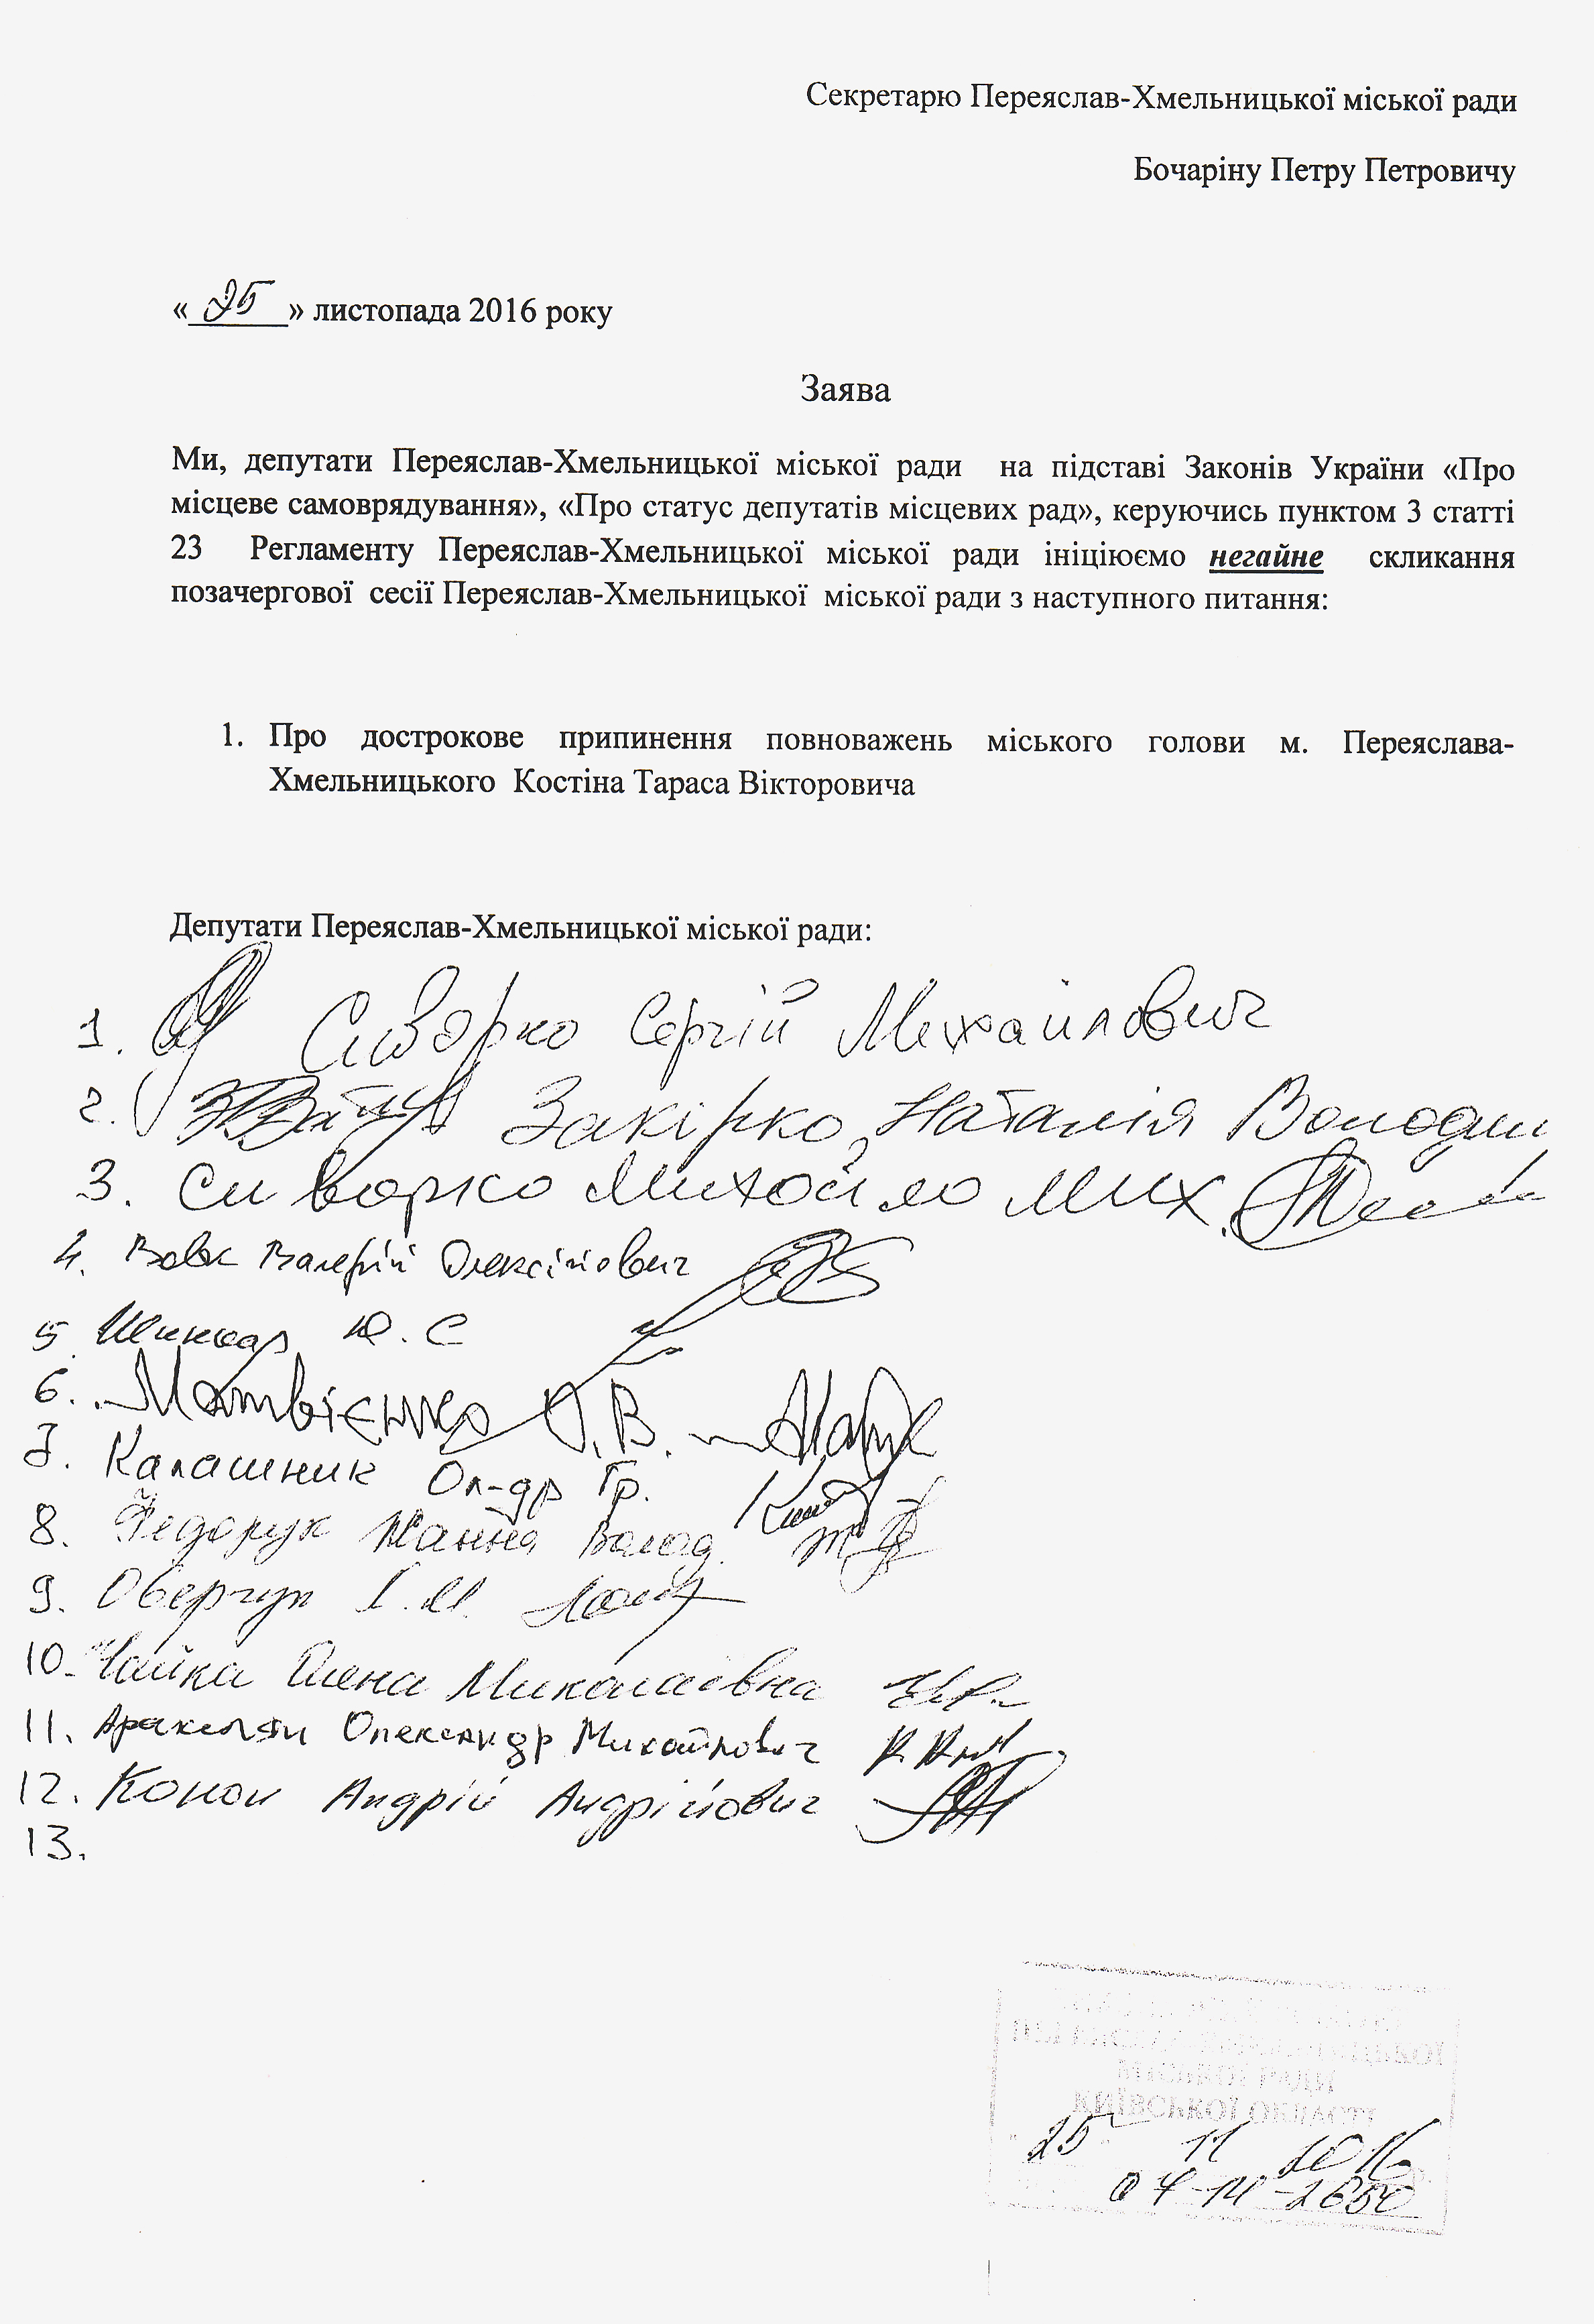 Секретарю Переяслав-Хмельницької міської ради
Бочаріну Петру Петровичу
«25» листопада 2016 року
Заява
Ми, депутати Переяслав-Хмельницької міської ради на підставі Законів України «Про
місцеве самоврядування», «Про статус депутатів місцевих рад», керуючись пунктом 3 статті
23 Регламенту Переяслав-Хмельницької міської ради ініціюємо негайне скликання
позачергової сесії Переяслав-Хмельницької міської ради з наступного питання:
1. Про дострокове припинення повноважень міського голови м. Переяслава-
Хмельницького Костіна Тараса Вікторовича
Депутати Переяслав-Хмельницької міської ради:
1. Сиворко Сергій Михайлович
2. Закірко Наталія Володим
3. Сиворко Михайло Мих.
4. Вовк Валерій Олексійович
5. Шинкар Ю. С
6. Матвієнко О. В.
7. Калашник Ол-др Гр.
8. Федорук Жанна Волод.
9. Оверчук І. М.
10. Чайка Олена Миколаївна
11. Олександр Михайлович
12. Андрій Андрійович
13.
МІСЬКОЇ РАДИ
КИЇВСЬКОЇ ОБЛАСТІ
25 11 2016